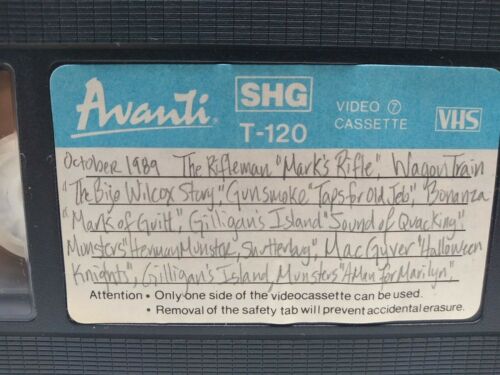 Avanti
SHG
T-120
VIDEO
CASSETTE
VHS
October 1989 The Rifleman "Mark's Rifle", Wagon Train
"The Bije Wilcox Story," Gunsmoke "Taps for Old Jeb," Bonanza
"Mark of Guilt", Gilligan's Island "Sound of Quacking"
Munsters "Herman Munster, Shutterbug", MacGyver "Halloween
Knights", Gilligan's Island, Munsters "A Man for Marilyn",
Attention • Only one side of the videocassette can be used.
• Removal of the safety tab will prevent accidental erasure.